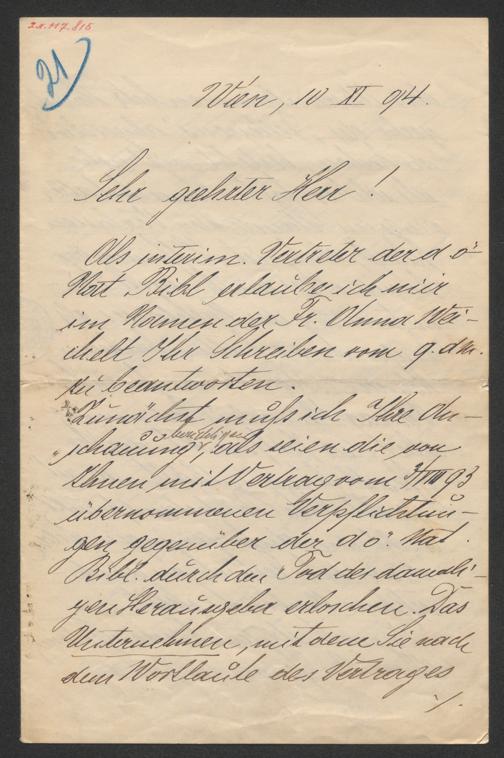 2.x.117.816
21
Wien, 10 XI 94.
Sehr geehrter Herr!
Als interim. Vertreter der d ö
Nat. Bibl. erlaube ich mir
im Namen der Fr. Anna Wei-
chelt Ihr Schreiben vom 9. d M.
zu beantworten.
Zunächst muß ich Ihre An-
schauung berichtigen, als seien die von
Ihnen mit Vertrag vom 93
übernommenen Verpflichtun-
gen gegenüber der d ö. Nat.
Bibl. durch den Tod des damali-
gen Herausgeber erloschen. Das
Unternehmen, mit dem Sie nach
dem Wortlaute des Vertrages
./.